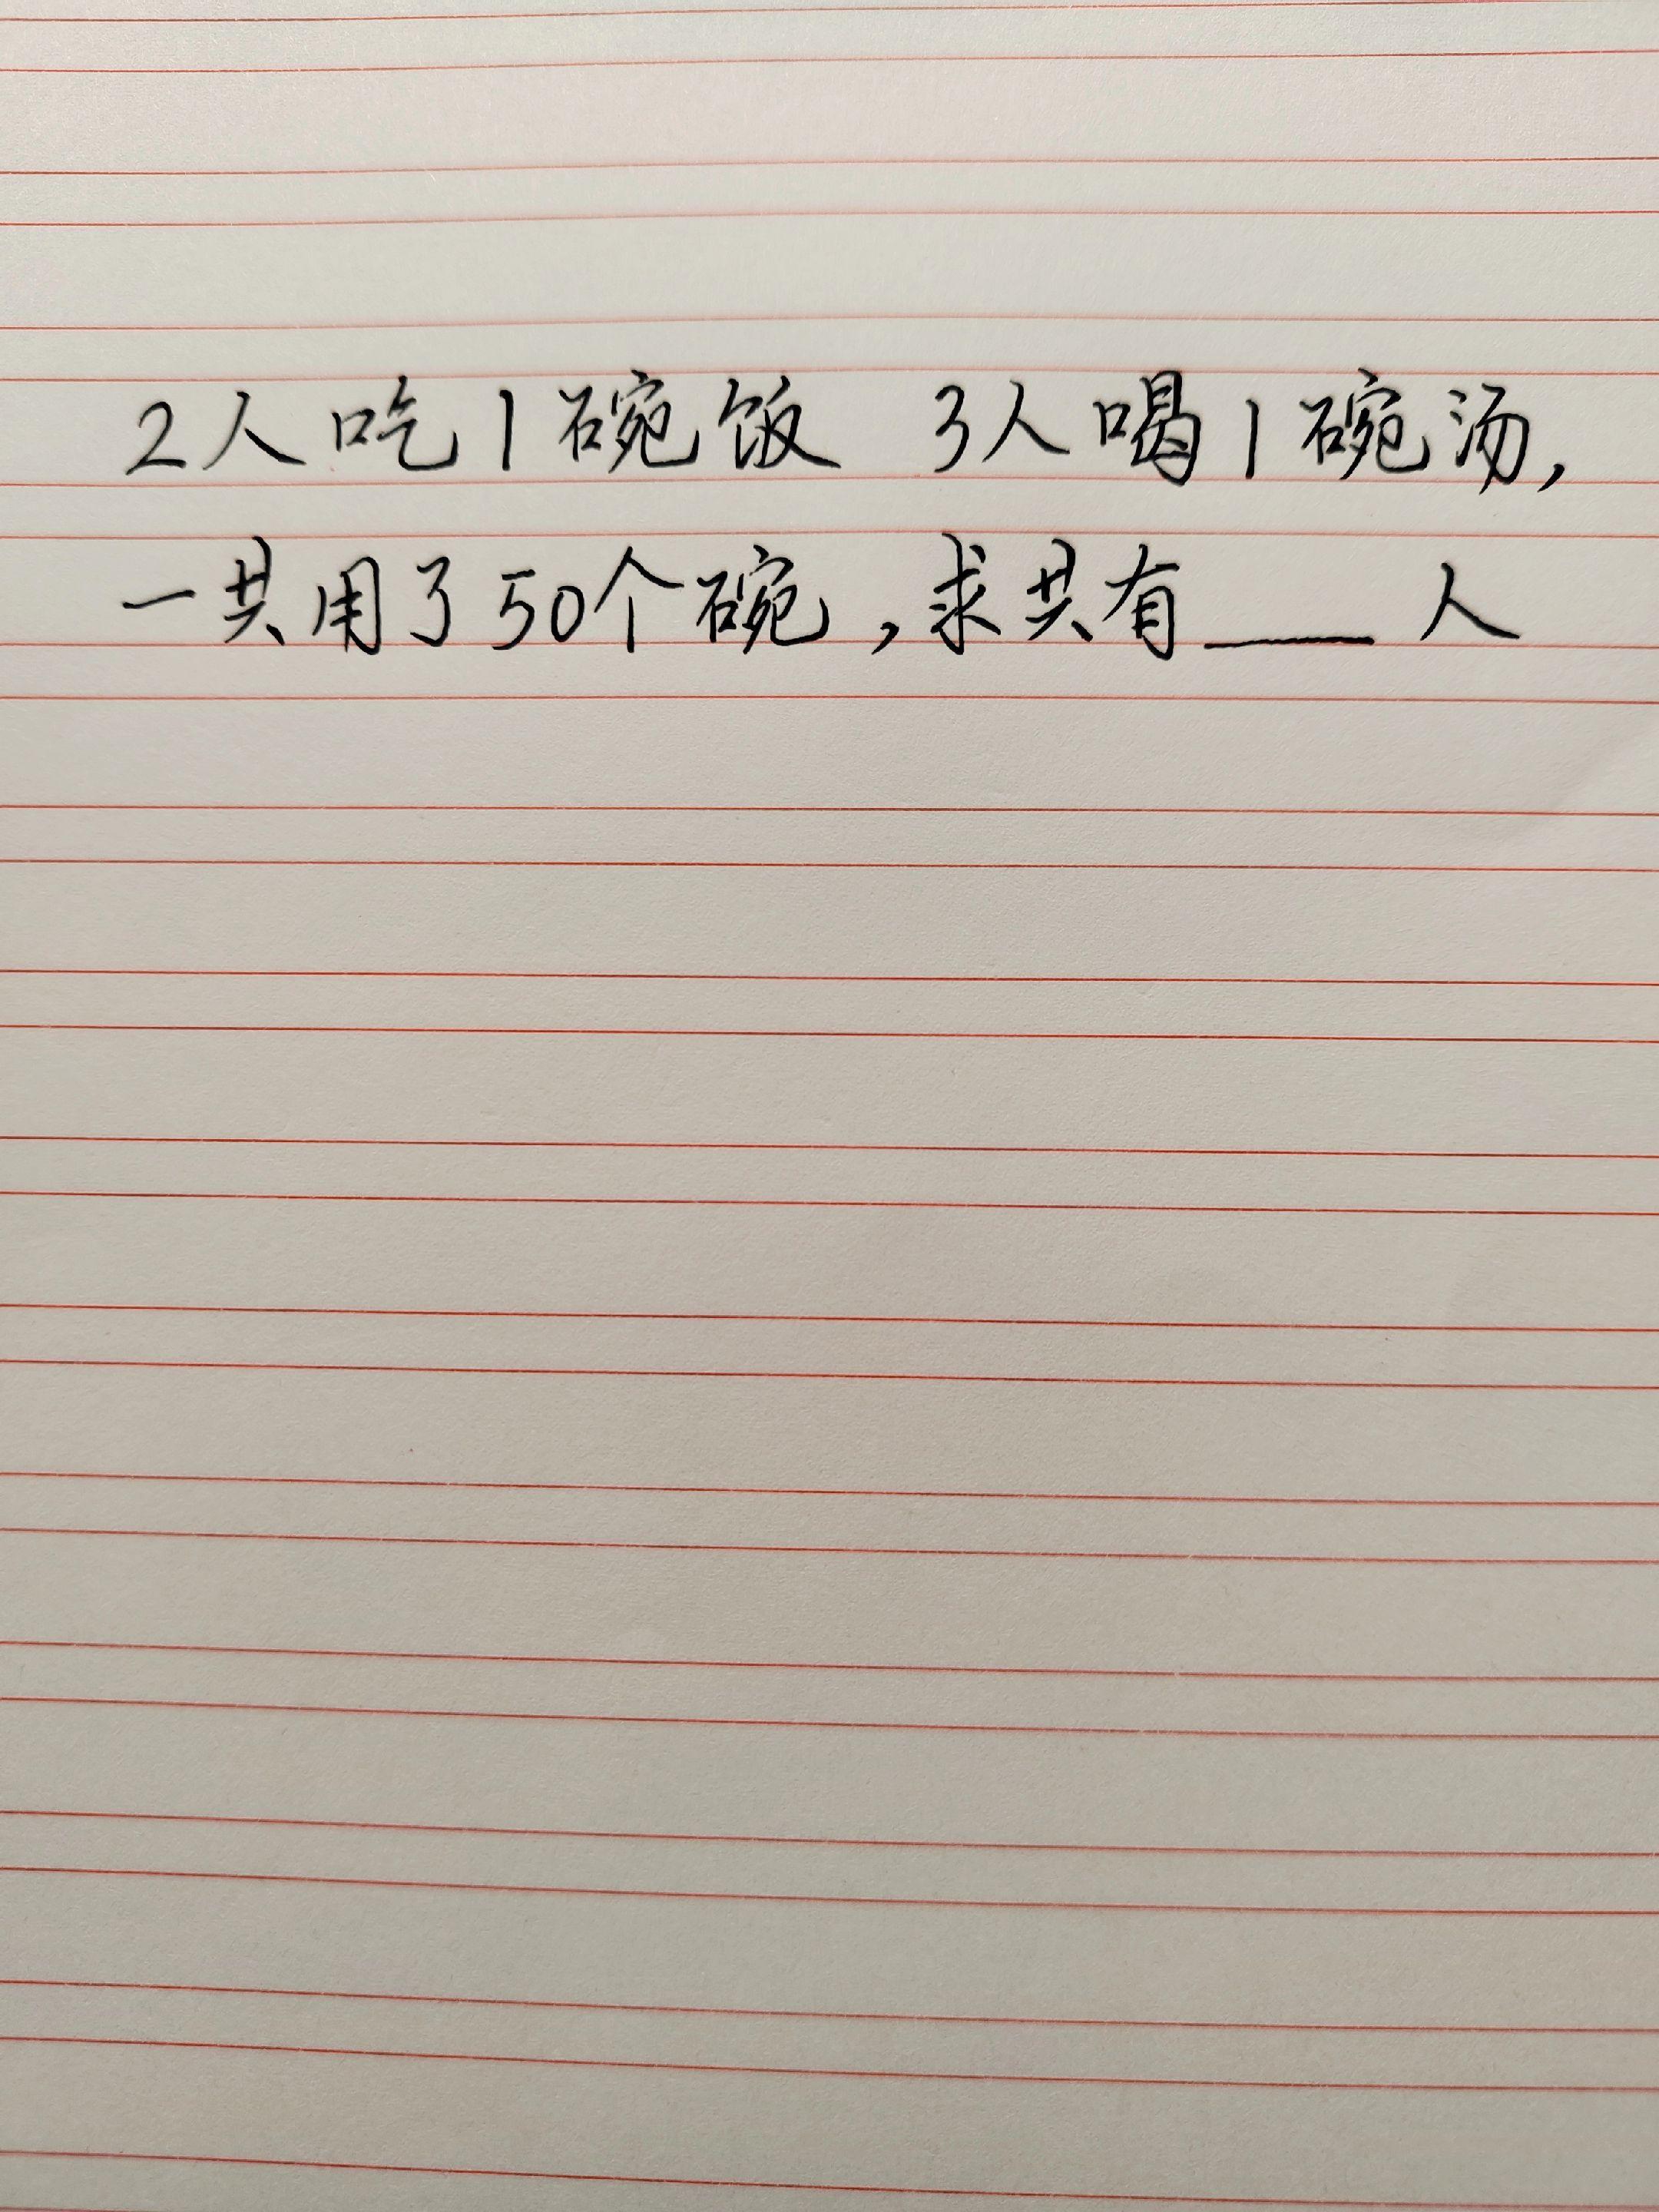 2人吃1碗饭 3人喝1碗汤,
一共用了50个碗,求共有___人